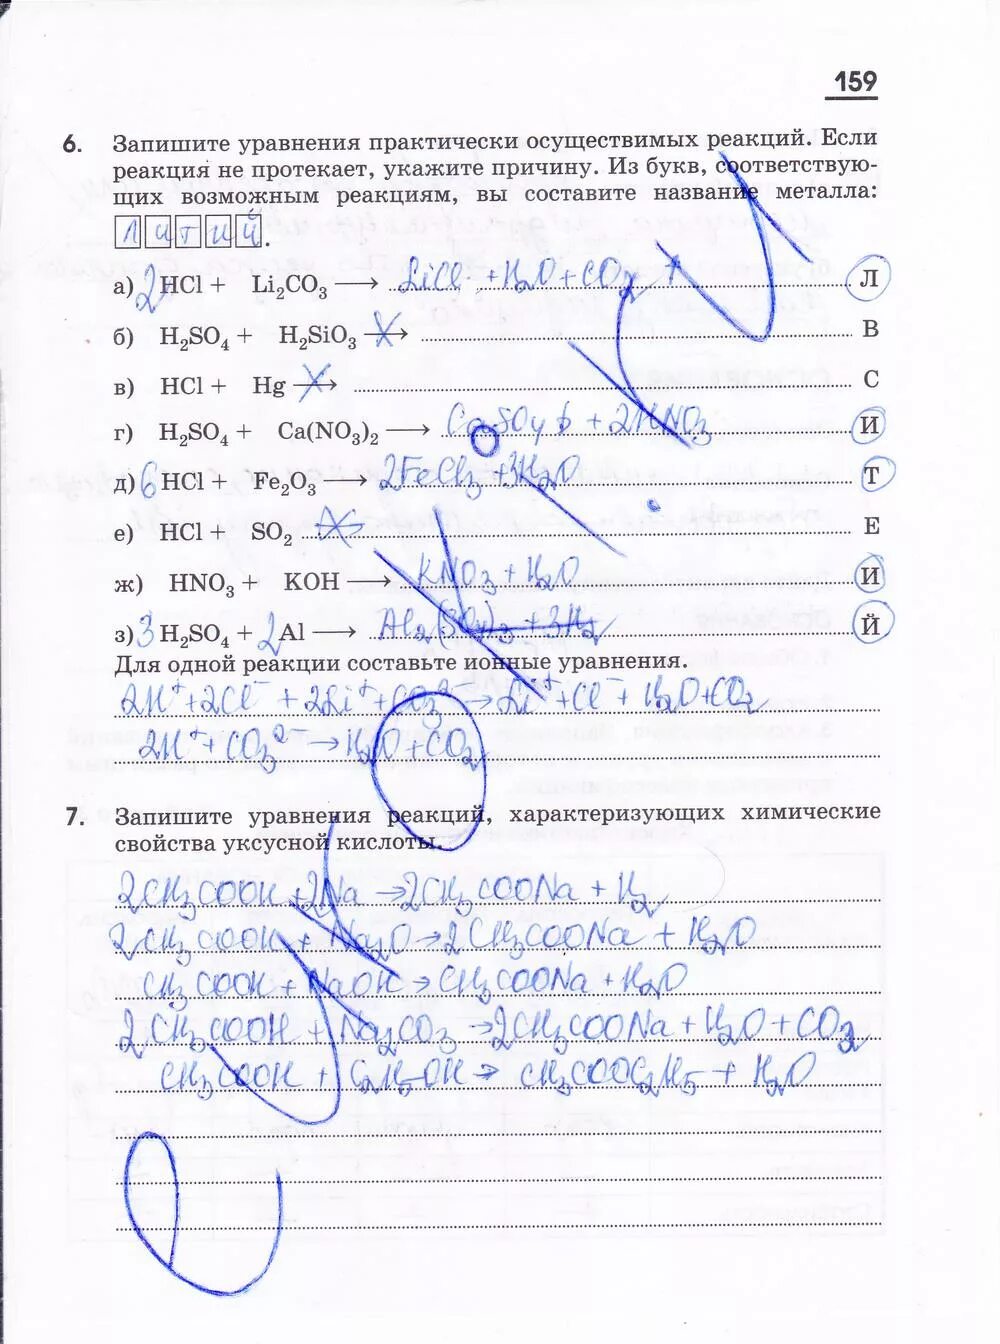 159
6. Запишите уравнения практически осуществимых реакций. Если
реакция не протекает, укажите причину. Из букв, соответствую-
щих возможным реакциям, вы составите название металла:
Л И Т И Й .
а) 2 HCl + Li₂CO₃ ⟶ LiCl + H₂O + CO₂ ↑ Л
б) H₂SO₄ + H₂SiO₃ ⟶ В
в) HCl + Hg ⟶ С
г) H₂SO₄ + Ca(NO₃)₂ ⟶ CaSO₄↓ + 2HNO₃ И
д) 6 HCl + Fe₂O₃ ⟶ 2FeCl₃ + 3H₂O Т
е) HCl + SO₂ Е
ж) HNO₃ + KOH ⟶ KNO₃ + H₂O И
з) 3 H₂SO₄ + 2 Al ⟶ Al₂(SO₄)₃ + 3H₂ Й
Для одной реакции составьте ионные уравнения.
2H⁺ + 2Cl⁻ + 2Li⁺ + CO₃²⁻ → Li⁺ + Cl⁻ + H₂O + CO₂
2H⁺ + CO₃²⁻ → H₂O + CO₂
7. Запишите уравнения реакций, характеризующих химические
свойства уксусной кислоты.
2CH₃COOH + 2Na → 2CH₃COONa + H₂
2CH₃COOH + Na₂O → 2CH₃COONa + H₂O
CH₃COOH + NaOH → CH₃COONa + H₂O
2CH₃COOH + Na₂CO₃ → 2CH₃COONa + H₂O + CO₂
CH₃COOH + C₂H₅OH → CH₃COOC₂H₅ + H₂O